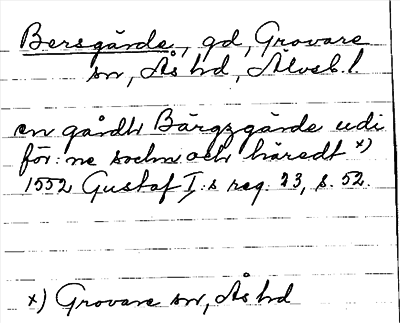 Bersgärde, gd, Grovare
sn, Ås hd, Älvsb. l.
en gårdh Bärgzgärde udi
för:ne sochn och häredt x)
1552 Gustaf I:s reg. 23, s. 52.
x) Grovare sn, Ås hd